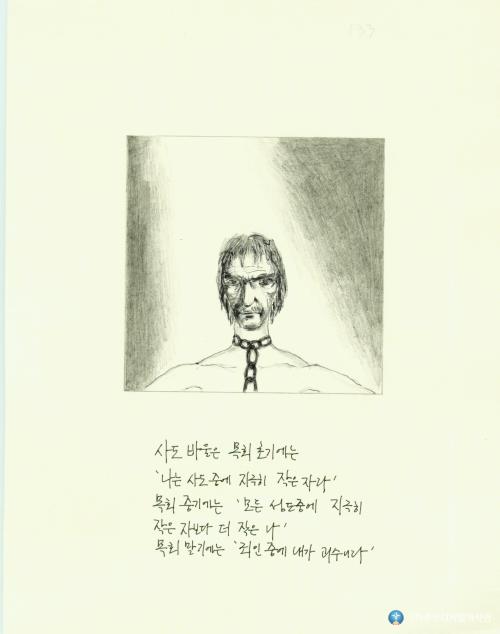 133
사도 바울은 목회 초기에는
'나는 사도 중에 지극히 작은 자라'
목회 중기에는 '모든 성도중에 지극히
작은 자보다 더 작은 나'
목회 말기에는 '죄인 중에 내가 괴수니라'